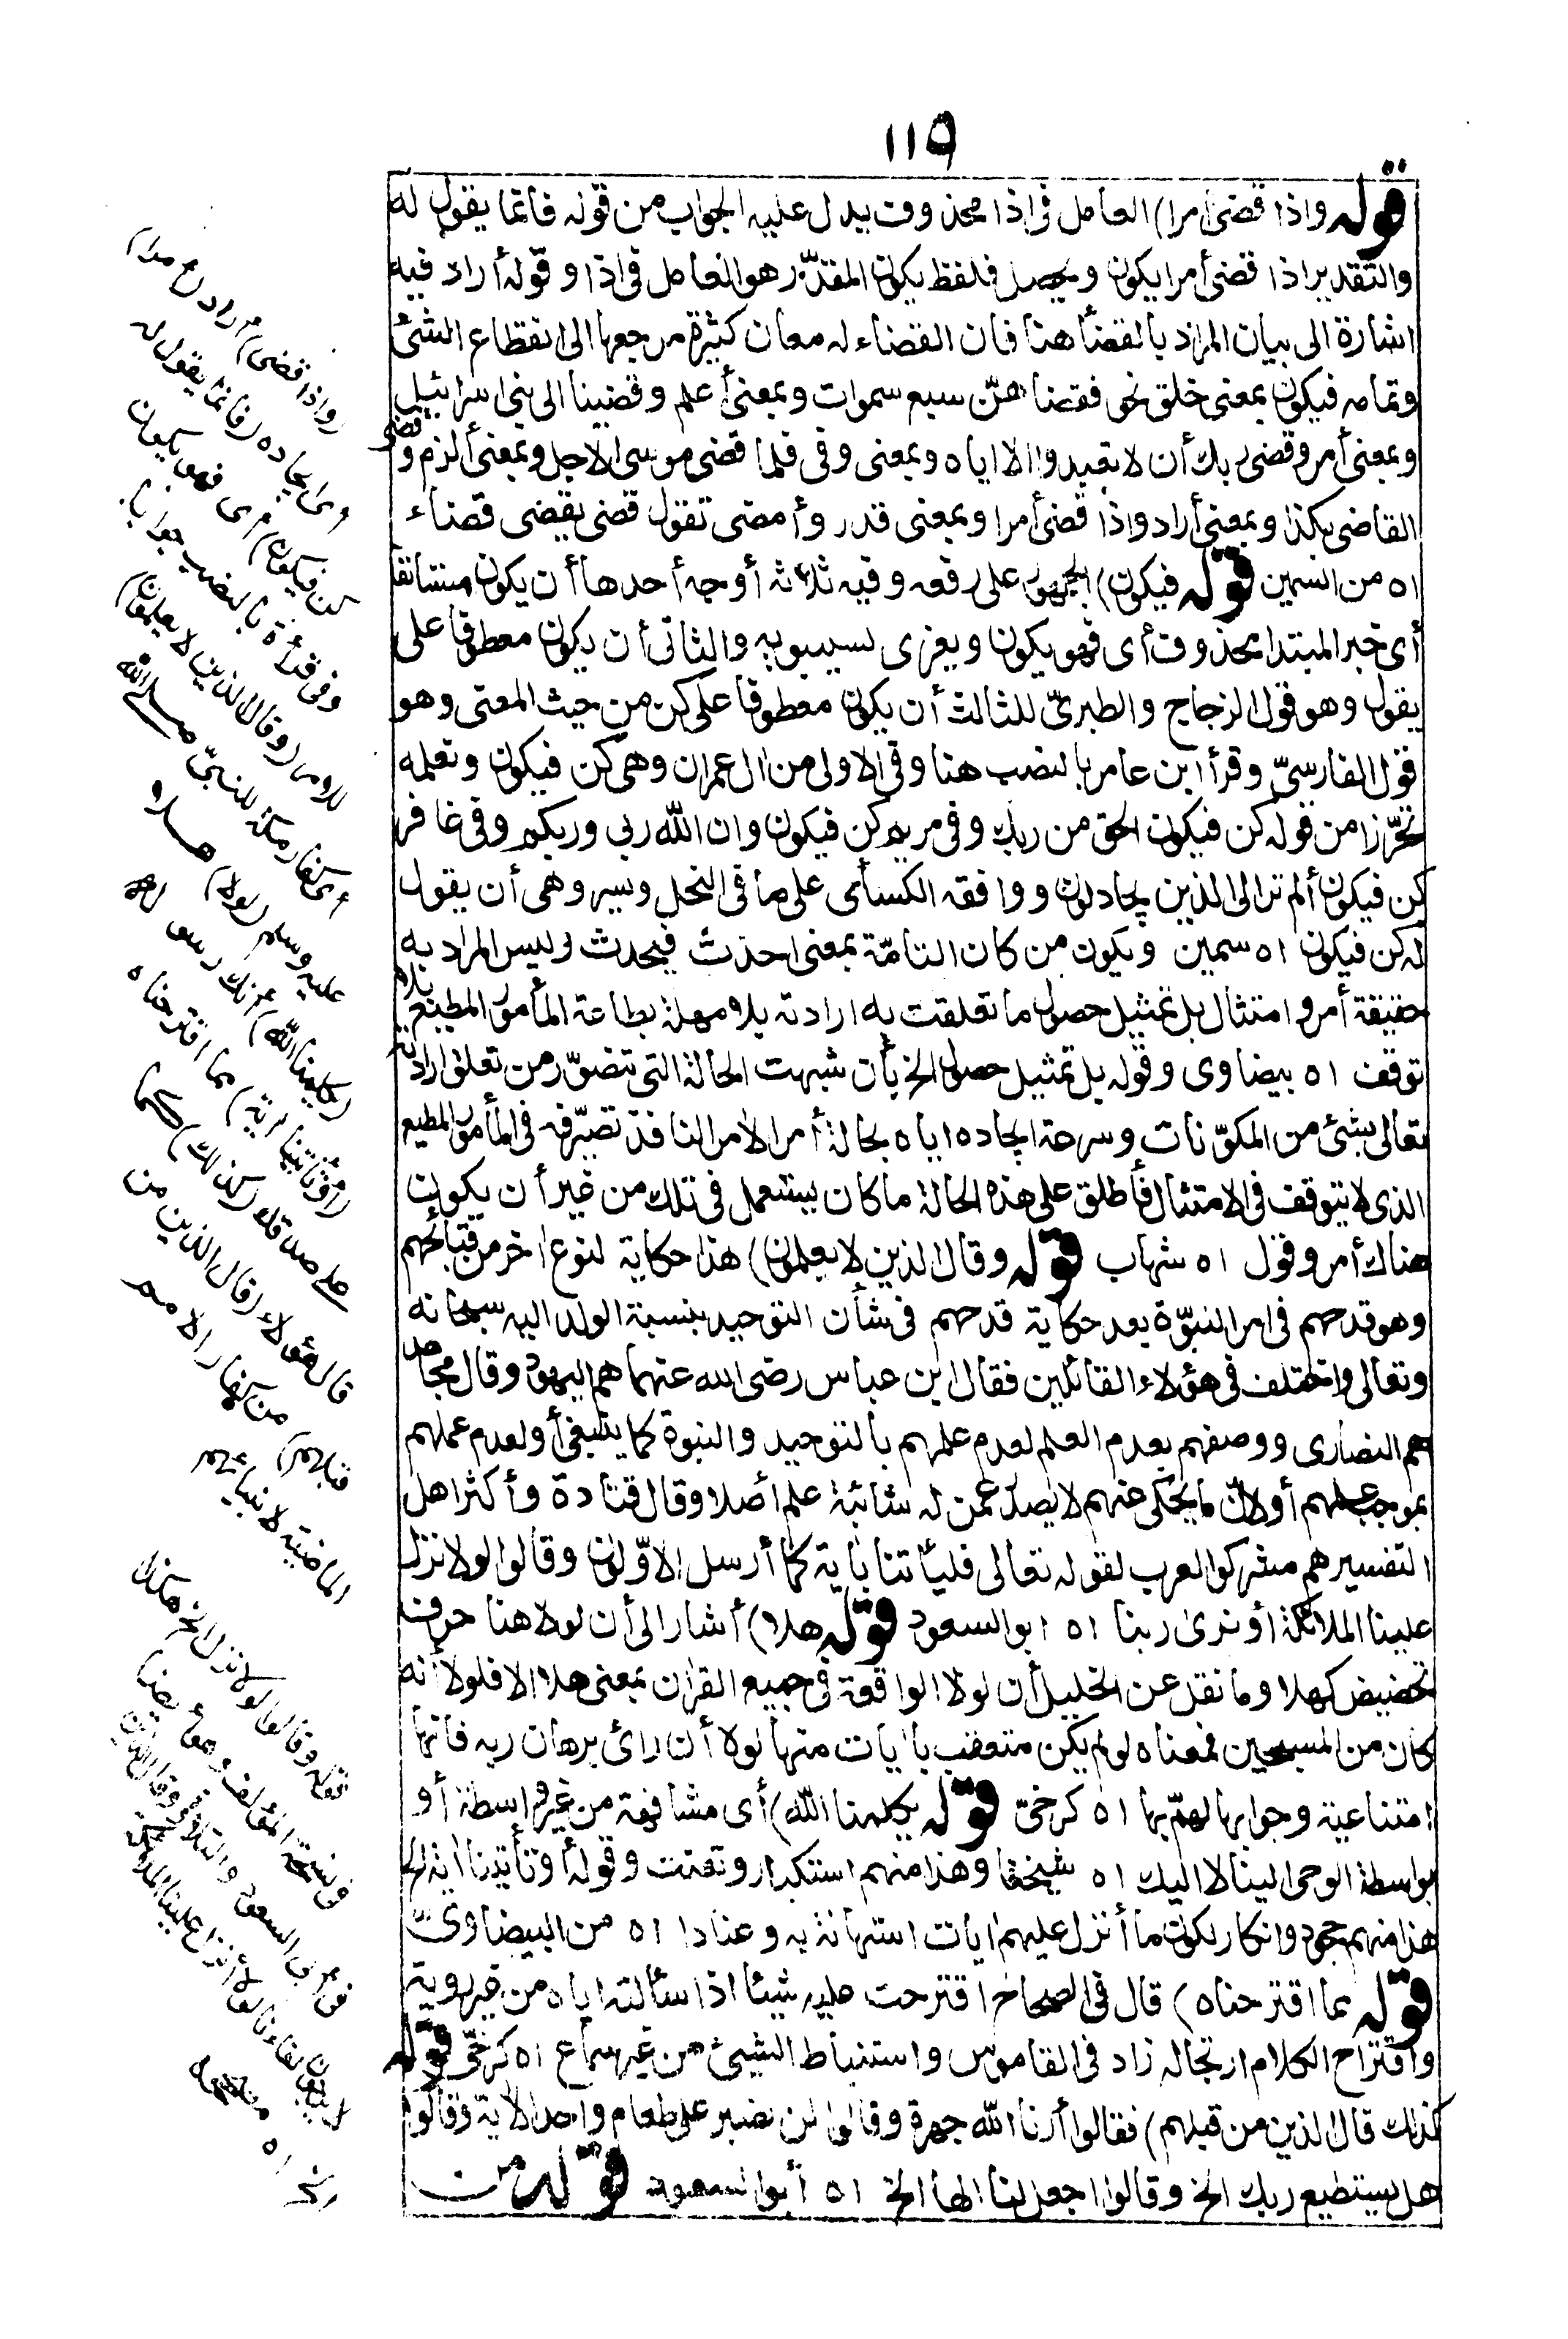 ١١٩
قوله واذا قضى أمرا) العامل فى اذا محذوف يدل عليه الجواب من قوله فانما يقول له
والتقدير اذا قضى أمرا يكون ويحصل فلفظ يكون المقدّر هو العامل فى اذا وقوله أراد فيه
اشارة الى بيان المراد بالقضأ هنا فان القضاء له معان كثيرة مرجعها الى انقطاع الشئ
وتمامه فيكون بمعنى خلق نحو فقضاهنّ سبع سموات وبمعنى أعلم وقضينا الى بنى اسرائيل
وبمعنى أمر وقضى ربك أن لا تعبدوا الا اياه وبمعنى وفى فلما قضى موسى الاجل وبمعنى ألزم وقضى
القاضى بكذا وبمعنى أراد واذا قضى أمرا وبمعنى قدر وأمضى تقول قضى يقضى قضاء
اه من السمين قوله فيكون) الجمهور على رفعه وفيه ثلاثة أوجه أحدها أن يكون مستأنفا
أى خبر المبتدا محذوف أى فهو يكون ويعزى لسيبويه والثانى أن يكون معطوفا على
يقول وهو قول الزجاج والطبرىّ للثالث أن يكون معطوفا على كن من حيث المعنى وهو
قول الفارسىّ وقرأ ابن عامر بالنصب هنا وفى الاولى من ال عمران وهى كن فيكون وتعلمه
تحرّزا من قوله كن فيكون الحق من ربك وفى مريم كن فيكون وان الله ربى وربكم وفى غافر
كن فيكون ألم تر الى الذين يجادلون ووافقه الكسأى على ما فى النحل ويسر وهى أن يقول
له كن فيكون اه سمين ويكون من كان التامّة بمعنى احدث فيحدث وليس المراد به
حقيقة أمر وامتثال بل تمثيل حصول ما تعلقت به ارادته بلا مهلة بطاعة المأمور المطيع بلا
توقف اه بيضاوى وقوله بل تمثيل حصول الخ بأن شبهت الحالة التى تتصوّر من تعلق ارادته
تعالى بشئ من المكوّنات وسرعة ايجاده اياه بحالة أمر الامر النافذ تصرّفه فى المأمور المطيع
الذى لا يتوقف فى الامتثال فأطلق على هذه الحالة ما كان يستعمل فى تلك من غير أن يكون
هناك أمر وقول اه شهاب قوله وقال الذين لا يعلمون) هذا حكاية لنوع اخر من قبائحهم
وهو قدحهم فى امر النبوّة بعد حكاية قدحهم فى شأن التوحيد بنسبة الولد اليه سبحانه
وتعالى واختلف فى هؤلاء القائلين فقال ابن عباس رضى الله عنهما هم اليهود وقال مجاهد
هم النصارى ووصفهم بعدم العلم لعدم علمهم بالتوحيد والنبوة كما ينبغى أو لعدم عملهم
بموجب علمهم أو لانّ ما يحكى عنهم لا يصدر عمن له شائبة علم أصلا وقال قتادة وأكثر اهل
التفسير هم مشركوا العرب لقوله تعالى فليأتنا باية كما أرسل الاوّلون وقالوا لولا نزل
علينا الملائكة أو نرى ربنا اه ابو السعود قوله هلا) أشار الى أن لولا هنا حرف
تحضيض كهلا وما نقل عن الخليل أن لولا الواقعة فى جميع القران بمعنى هلا الا فلولا أنه
كان من المسبحين فمعناه لو لم يكن متعقب بايات منها لولا أن رائ برهان ربه فانها
امتناعية وجوابها لهمّ بها اه كرخىّ قوله يكلمنا الله) أى مشافهة من غير واسطة أو
بواسطة الوحى الينا لا اليك اه شيخنا وهذا منهم استكبار وتعنت وقوله أو تأتينا اية الخ
هذا منهم جحود وانكار لكون ما أنزل عليهم ايات استهانة به وعنادا اه من البيضاوىّ
قوله بما اقترحناه) قال فى الصحاح اقترحت عليه شيئا اذا سألته اياه من غير روية
واقتراح الكلام ارتجاله زاد فى القاموس واستنباط الشيئ من غير سماع اه كرخىّ قوله
كذلك قال الذين من قبلهم) فقالوا أرنا الله جهرة وقالوا لن نصبر على طعام واحد الاية وقالوا
هل يستطيع ربك الخ وقالوا اجعل لنا الها الخ اه أبو السعود قوله من
(واذا قضى) أراد (أمرا)
أى ايجاده (فانما يقول له
كن فيكون) أى فهو يكون
وفى قرأة بالنصب جوابا
للامر (وقال الذين لا يعلمون)
أى كفار مكة للنبىّ صلى الله
عليه وسلم (لولا) هلا
(يكلمنا الله) أنك رسوله
(أو تأتينا اية) مما اقترحناه
على صدقك (كذلك) كما
قال هؤلاء (قال الذين من
قبلهم) من كفار الامم
الماضية لانبيائهم
قوله وقالوا لولا نزل الخ هكذا
فى نسخة المؤلف وهو أيضا
فى أبى السعود والتلاوة وقال الذين
لا يرجون لقاءنا لولا أنزل علينا الملائكة
الخ اه